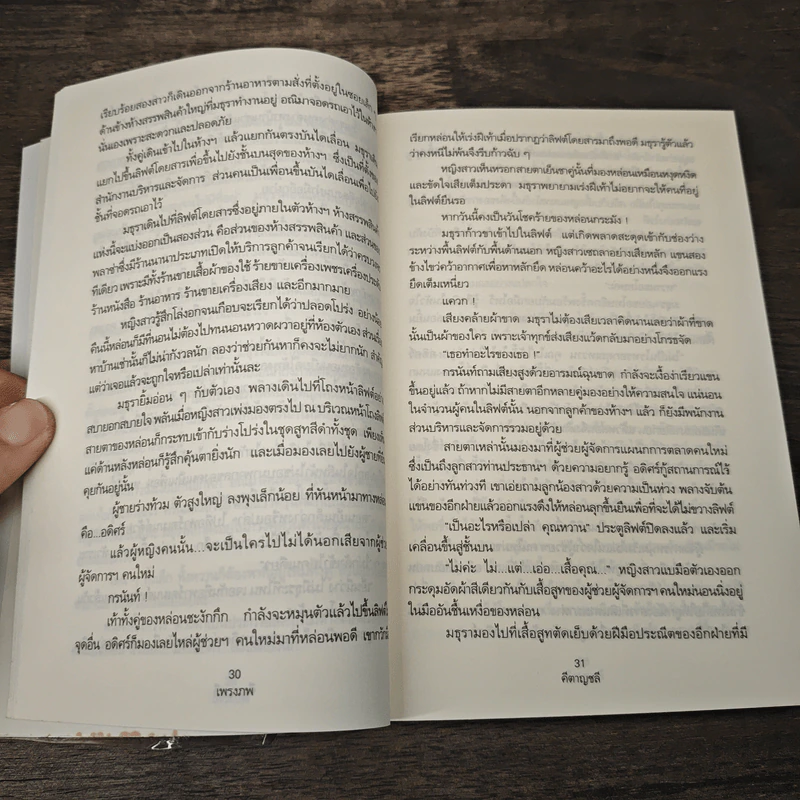 เรียบร้อยสองสาวก็เดินออกจากร้านอาหารตามสั่งที่ตั้งอยู่ในซอยเล็ก
ด้านข้างห้างสรรพสินค้าใหญ่ที่มธุราทำงานอยู่ อณิมาจอดรถเอาไว้ใน
นั่นเองเพราะสะดวกและปลอดภัย
ทั้งคู่เดินเข้าไปในห้างฯ แล้วแยกกันตรงบันไดเลื่อน มธุรา
แยกไปขึ้นลิฟต์โดยสารเพื่อขึ้นไปยังชั้นบนสุดของห้างฯ ซึ่งเป็นที่
สำนักงานบริหารและจัดการ ส่วนคนเป็นเพื่อนขึ้นบันไดเลื่อนเพื่อ
ชั้นที่จอดรถเอาไว้
มธุราเดินไปที่ลิฟต์โดยสารซึ่งอยู่ภายในตัวห้างฯ ห้างสรรพสินค้า
แห่งนี้จะแบ่งออกเป็นสองส่วน คือส่วนของห้างสรรพสินค้า และส่วน
พลาซ่าซึ่งมีร้านนานาประเภทเปิดให้บริการลูกค้าจนเรียกได้ว่าครบ
ทีเดียว เพราะมีทั้งร้านขายเสื้อผ้าของใช้ ร้ายขายเครื่องเพชรเครื่อง
ร้านหนังสือ ร้านอาหาร ร้านขายเครื่องเสียง และอีกมากมาย
หญิงสาวรู้สึกโล่งอกจนเกือบจะเรียกได้ว่าปลอดโปร่ง อย่าง
คืนนี้หล่อนก็มีที่นอนไม่ต้องไปทนนอนหวาดผวาอยู่ที่ห้องตัวเอง ส่วน
หาบ้านเช่านั้นก็ไม่น่ากังวลนัก ลองว่าช่วยกันหาก็คงจะไม่ยากนัก สำคัญ
แต่ว่าเจอแล้วจะถูกใจหรือเปล่าเท่านั้นละ
มธุรายิ้มอ่อน ๆ กับตัวเอง พลางเดินไปที่โถงหน้าลิฟต์
สบายอกสบายใจ พลันเมื่อหญิงสาวเพ่งมองตรงไป ณ บริเวณหน้าโถง
สายตาของหล่อนก็กระทบเข้ากับร่างโปร่งในชุดสูทสีดำทั้งชุด เพียง
แค่ด้านหลังหล่อนก็รู้สึกคุ้นตายิ่งนัก และเมื่อมองเลยไปยังผู้ชายที่
คุยกันอยู่นั้น
ผู้ชายร่างท้วม ตัวสูงใหญ่ ลงพุงเล็กน้อย ที่หันหน้ามาทางหล่อน
คือ...อดิศร์
แล้วผู้หญิงคนนั้น...จะเป็นใครไปไม่ได้นอกเสียจากผู้ช่วย
ผู้จัดการฯ คนใหม่
กรนันท์ !
เท้าทั้งคู่ของหล่อนชะงักกึก กำลังจะหมุนตัวแล้วไปขึ้นลิฟต์
จุดอื่น อดิศร์ก็มองเลยไหล่ผู้ช่วยฯ คนใหม่มาที่หล่อนพอดี เขากวัก
30
เพรงภพ
เรียกหล่อนให้เร่งฝีเท้าเมื่อปรากฏว่าลิฟต์โดยสารมาถึงพอดี มธุรารู้ตัวแล้ว
ว่าคงหนีไม่พ้นจึงรีบก้าวฉับ ๆ
หญิงสาวเห็นพรอกสายตาเย็นชาคู่นั้นที่มองหล่อนเหมือนหงุดหงิด
และขัดใจเสียเต็มประดา มธุราพยายามเร่งฝีเท้าไม่อยากจะให้คนที่อยู่
ในลิฟต์ยืนรอ
หากวันนี้คงเป็นวันโชคร้ายของหล่อนกระมัง !
มธุราก้าวขาเข้าไปในลิฟต์ แต่เกิดพลาดสะดุดเข้ากับช่องว่าง
ระหว่างพื้นลิฟต์กับพื้นด้านนอก หญิงสาวเซถลาอย่างเสียหลัก แขนสอง
ข้างไขว่คว้าอากาศเพื่อหาหลักยึด หล่อนคว้าอะไรได้อย่างหนึ่งจึงออกแรง
ยึดเต็มเหนี่ยว
แควก !
เสียงคล้ายผ้าขาด มธุราไม่ต้องเสียเวลาคิดนานเลยว่าผ้าที่ขาด
นั้นเป็นผ้าของใคร เพราะเจ้าทุกข์ส่งเสียงแว้ดกลับมาอย่างโกรธจัด
“เธอทำอะไรของเธอ !”
กรนันท์ถามเสียงสูงด้วยอารมณ์ฉุนขาด กำลังจะเงื้อง่าเรียวแขน
ขึ้นอยู่แล้ว ถ้าหากไม่มีสายตาอีกหลายคู่มองอย่างให้ความสนใจ แน่นอน
ในจำนวนผู้คนในลิฟต์นั้น นอกจากลูกค้าของห้างฯ แล้ว ก็ยังมีพนักงาน
ส่วนบริหารและจัดการรวมอยู่ด้วย
สายตาเหล่านั้นมองมาที่ผู้ช่วยผู้จัดการแผนกการตลาดคนใหม่
ซึ่งเป็นถึงลูกสาวท่านประธานฯ ด้วยความอยากรู้ อดิศร์กู้สถานการณ์ไว้
ได้อย่างทันท่วงที เขาเอ่ยถามลูกน้องสาวด้วยความเป็นห่วง พลางจับต้น
แขนของอีกฝ่ายแล้วออกแรงดึงให้หล่อนลุกขึ้นยืนเพื่อที่จะได้ไม่ขวางลิฟต์
“เป็นอะไรหรือเปล่า คุณหว่าน” ประตูลิฟต์ปิดลงแล้ว และเริ่ม
เคลื่อนขึ้นสู่ชั้นบน
“ไม่ค่ะ ไม่...แต่...เอ่อ...เสื้อคุณ...” หญิงสาวแบมือตัวเองออก
กระดุมอัดผ้าสีเดียวกันกับเสื้อสูทของผู้ช่วยผู้จัดการฯ คนใหม่นอนนิ่งอยู่
ในมืออันชื้นเหงื่อของหล่อน
มธุรามองไปที่เสื้อสูทตัดเย็บด้วยฝีมือประณีตของอีกฝ่ายที่มี
31
คีตาญชลี